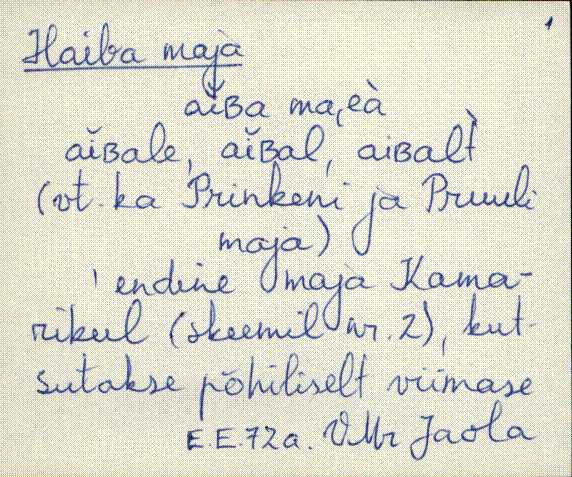 1
Haiba maja
aĭʙa ma͔eà
aĭʙale, aĭʙal, aiʙalt̀
(vt. ka Prinkeni ja Pruuli
maja)
' endine maja Kama-
rikul (skeemil nr. 2), kut-
sutakse põhiliselt viimase
E.E.72a. VMr Jaola